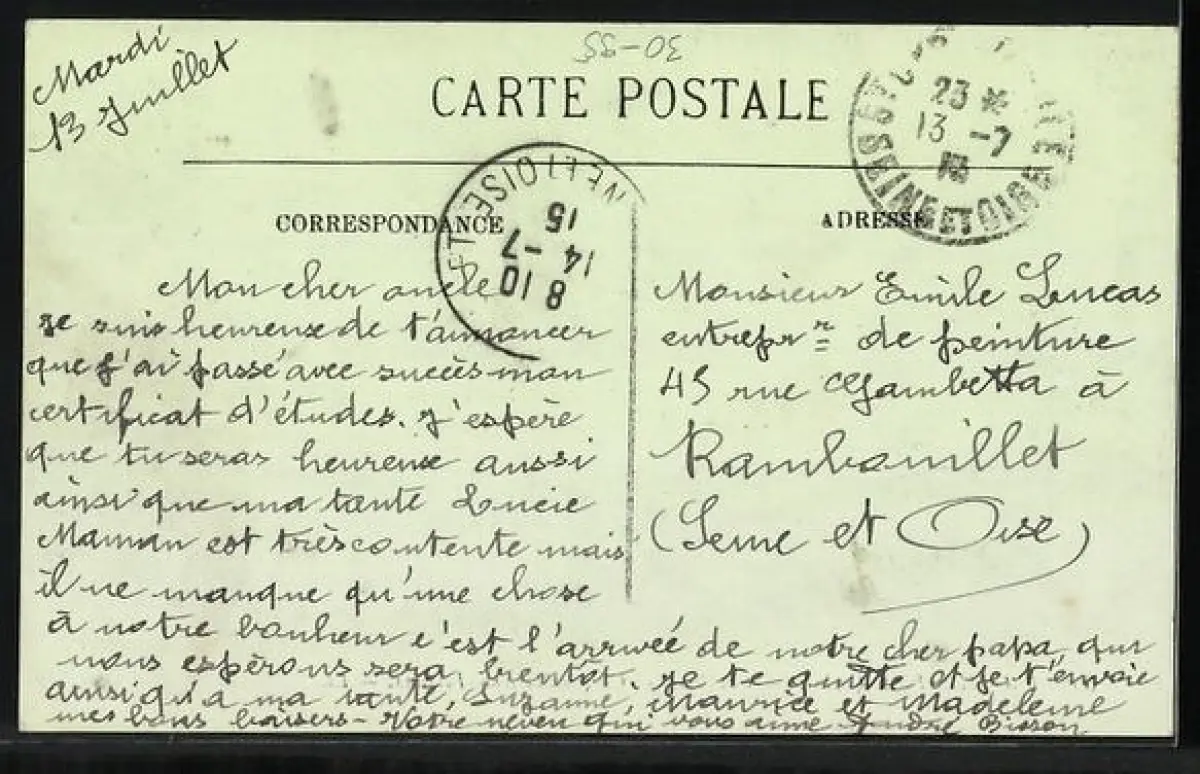 Mardi
13 Juillet
30-95
CARTE POSTALE
23 *
13 -7
SEINE ET OISE
CORRESPONDANCE
ADRESSE
ET OISE
8 10
14 -7
15
Mon cher oncle
Je suis heureuse de t'annoncer
que j'ai passé avec succès mon
certificat d'études. J'espère
que tu seras heureuse aussi
ainsi que ma tante Lucie
Maman est très contente mais
il ne manque qu'une chose
à notre bonheur c'est l'arrivée de notre cher papa, qui
nous espérons sera bientôt. Je te quitte et je t'envoie
ainsi qu'à ma tante, Suzanne, Maurice et Madeleine
mes bons baisers - Votre neveu qui vous aime André Bisson
Monsieur Emile Lucas
entrepr r de peinture
45 rue Gambetta à
Rambouillet
(Seine et Oise)